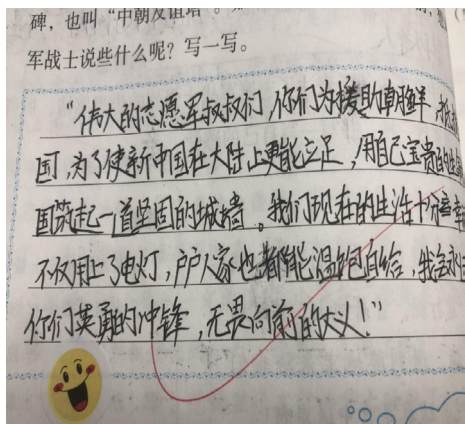 碑，也叫“中朝友谊塔”。
军战士说些什么呢？写一写。
“伟大的志愿军叔叔们，你们为援助朝鲜，抗
国，为了使新中国在大陆上更能立足，用自己宝贵的生
国筑起一道坚固的城墙。我们现在的生活十分幸
不仅用上了电灯，户户人家也都能温饱自给，我会永
你们英勇的冲锋，无畏向前的大义！”